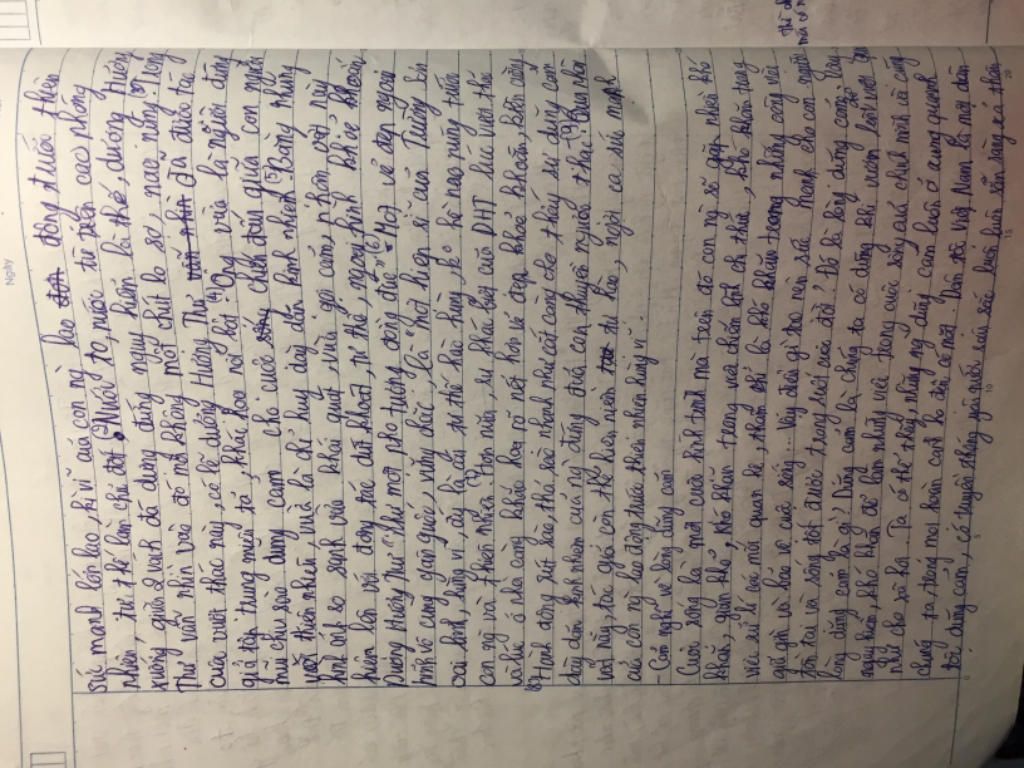 Sức mạnh lớn lao, kì vĩ của con ng lao động trước thiên
nhiên, tư thế làm chủ (1) Nước to, nước từ trên cao phóng
xuống giữa 2 vách đá dựng đứng nguy hiểm là thế, dượng Hương
Thư vẫn nhìn vào đó mà không một chút lo sợ, nao núng (3) Trong
cuộc vượt thác này, có lẽ dượng Hương Thư đã được tác
giả tập trung miêu tả, khắc họa nổi bật (4) Ông vừa là người đứng
mũi chịu sào dũng cảm cho cuộc chiến đấu giữa con người
với thiên nhiên, vừa là chỉ huy dày dặn kinh nhiệm (5) Bằng những
hình ảnh so sánh vừa khái quát, vừa gợi cảm, nhân vật này
hiện lên với động tác dứt khoát, tư thế, ngoại hình khỏe khoắn
Dượng Hương Thư "như một pho tượng đồng đúc" (6) Một vẻ đẹp ngoại
hình vô cùng gân guốc, vững chắc, là "một hiệp sĩ của Trường Sơn
oai linh, hùng vĩ, ấy là đối tư thế hào hùng,
con ng và thiên nhiên (7) Hơn nữa, sự khác biệt của DHT lúc vượt thác
và khi ở nhà càng khắc họa rõ nét hơn vẻ đẹp khỏe khoắn, bền
(8) Hành động rút sào, thả sào nhanh như cắt càng cho thấy sự dũng cảm
dày dặn kinh nhiệm của ng đứng đầu con thuyền người thác (9) Qua nhân
vật này, tác giả còn thể hiện niềm tự hào, ngợi ca sức mạnh
của con ng lao động trước thiên nhiên hùng vĩ.
- Cảm nghĩ về lòng dũng cảm
Cuộc sống là một cuộc hành trình mà trên đó con ng sẽ gặp nhiều khó
khăn, gian khổ, khó khăn trong việc chiếm lĩnh tri thức, khó khăn trong
việc xử lí các mối quan hệ, thậm chí là khó khăn trong những công việc
giữ gìn và bảo vệ cuộc sống... Vậy thứ gì tạo nên sức mạnh cho con người
tồn tại và sống tốt được trong suốt cuộc đời? Đó là lòng dũng cảm. Vậy
lòng dũng cảm là gì? Dũng cảm là chúng ta có dũng khí vươn lên vượt qua
nguy hiểm, khó khăn để làm những việc trong cuộc sống cho chính mình và cũng
như cho xã hội. Ta có thể thấy, những ng dũng cảm luôn ở xung quanh
chúng ta, trong mọi hoàn cảnh ko đâu là ko có. Dân tộc Việt Nam là một dân
tộc dũng cảm, có truyền thống yêu nước sâu sắc luôn luôn sẵn sàng xả thân
Ngày
5
10
15
20